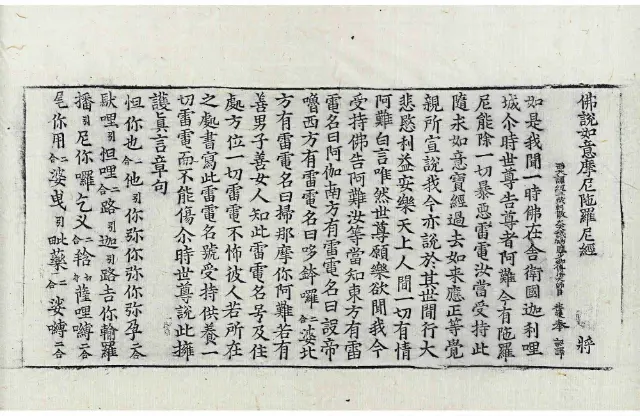 佛說如意摩尼陀羅尼經 將
奉 詔譯
如是我聞一時佛在舍衛國迦利哩
城尒時世尊告尊者阿難今有陀羅
尼能除一切暴惡雷電汝當受持此
隨求如意寶經過去如來應正等覺
親所宣說我今亦說於其世間行大
悲愍利益安樂天上人間一切有情
阿難白言唯然世尊願樂欲聞我今
受持佛告阿難汝等當知東方有雷
電名曰阿伽南方有雷電名曰設帝
嚕西方有雷電名曰哆鉢囉二合婆北
方有雷電名曰掃那摩你阿難若有
善男子善女人知此雷電名号及住
處方位一切雷電不怖彼人若所在
之處書寫此雷電名號受持供養一
切雷電而不能傷尒時世尊說此擁
護眞言章句
怛你也二合他引你弥你弥你弥孕二合
歐哩引怛哩二合路引迦引路吉你輸羅
播引尼你囉乞义二合𤚥薩哩嚩二合
尾你用二合婆曳引毗藥二合娑嚩二合